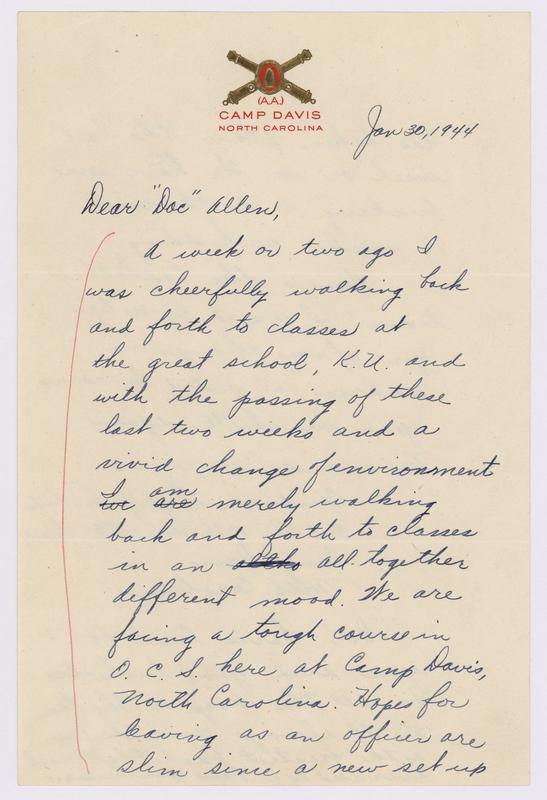 (A.A.)
CAMP DAVIS
NORTH CAROLINA
Jan 30, 1944
Dear "Doc" Allen,
A week or two ago I
was cheerfully walking back
and forth to classes at
the great school, K.U. and
with the passing of these
last two weeks and a
vivid change of environment
I am merely walking
back and forth to classes
in an all-together
different mood. We are
facing a tough course in
O.C.S. here at Camp Davis,
North Carolina. Hopes for
leaving as an officer are
slim since a new set up